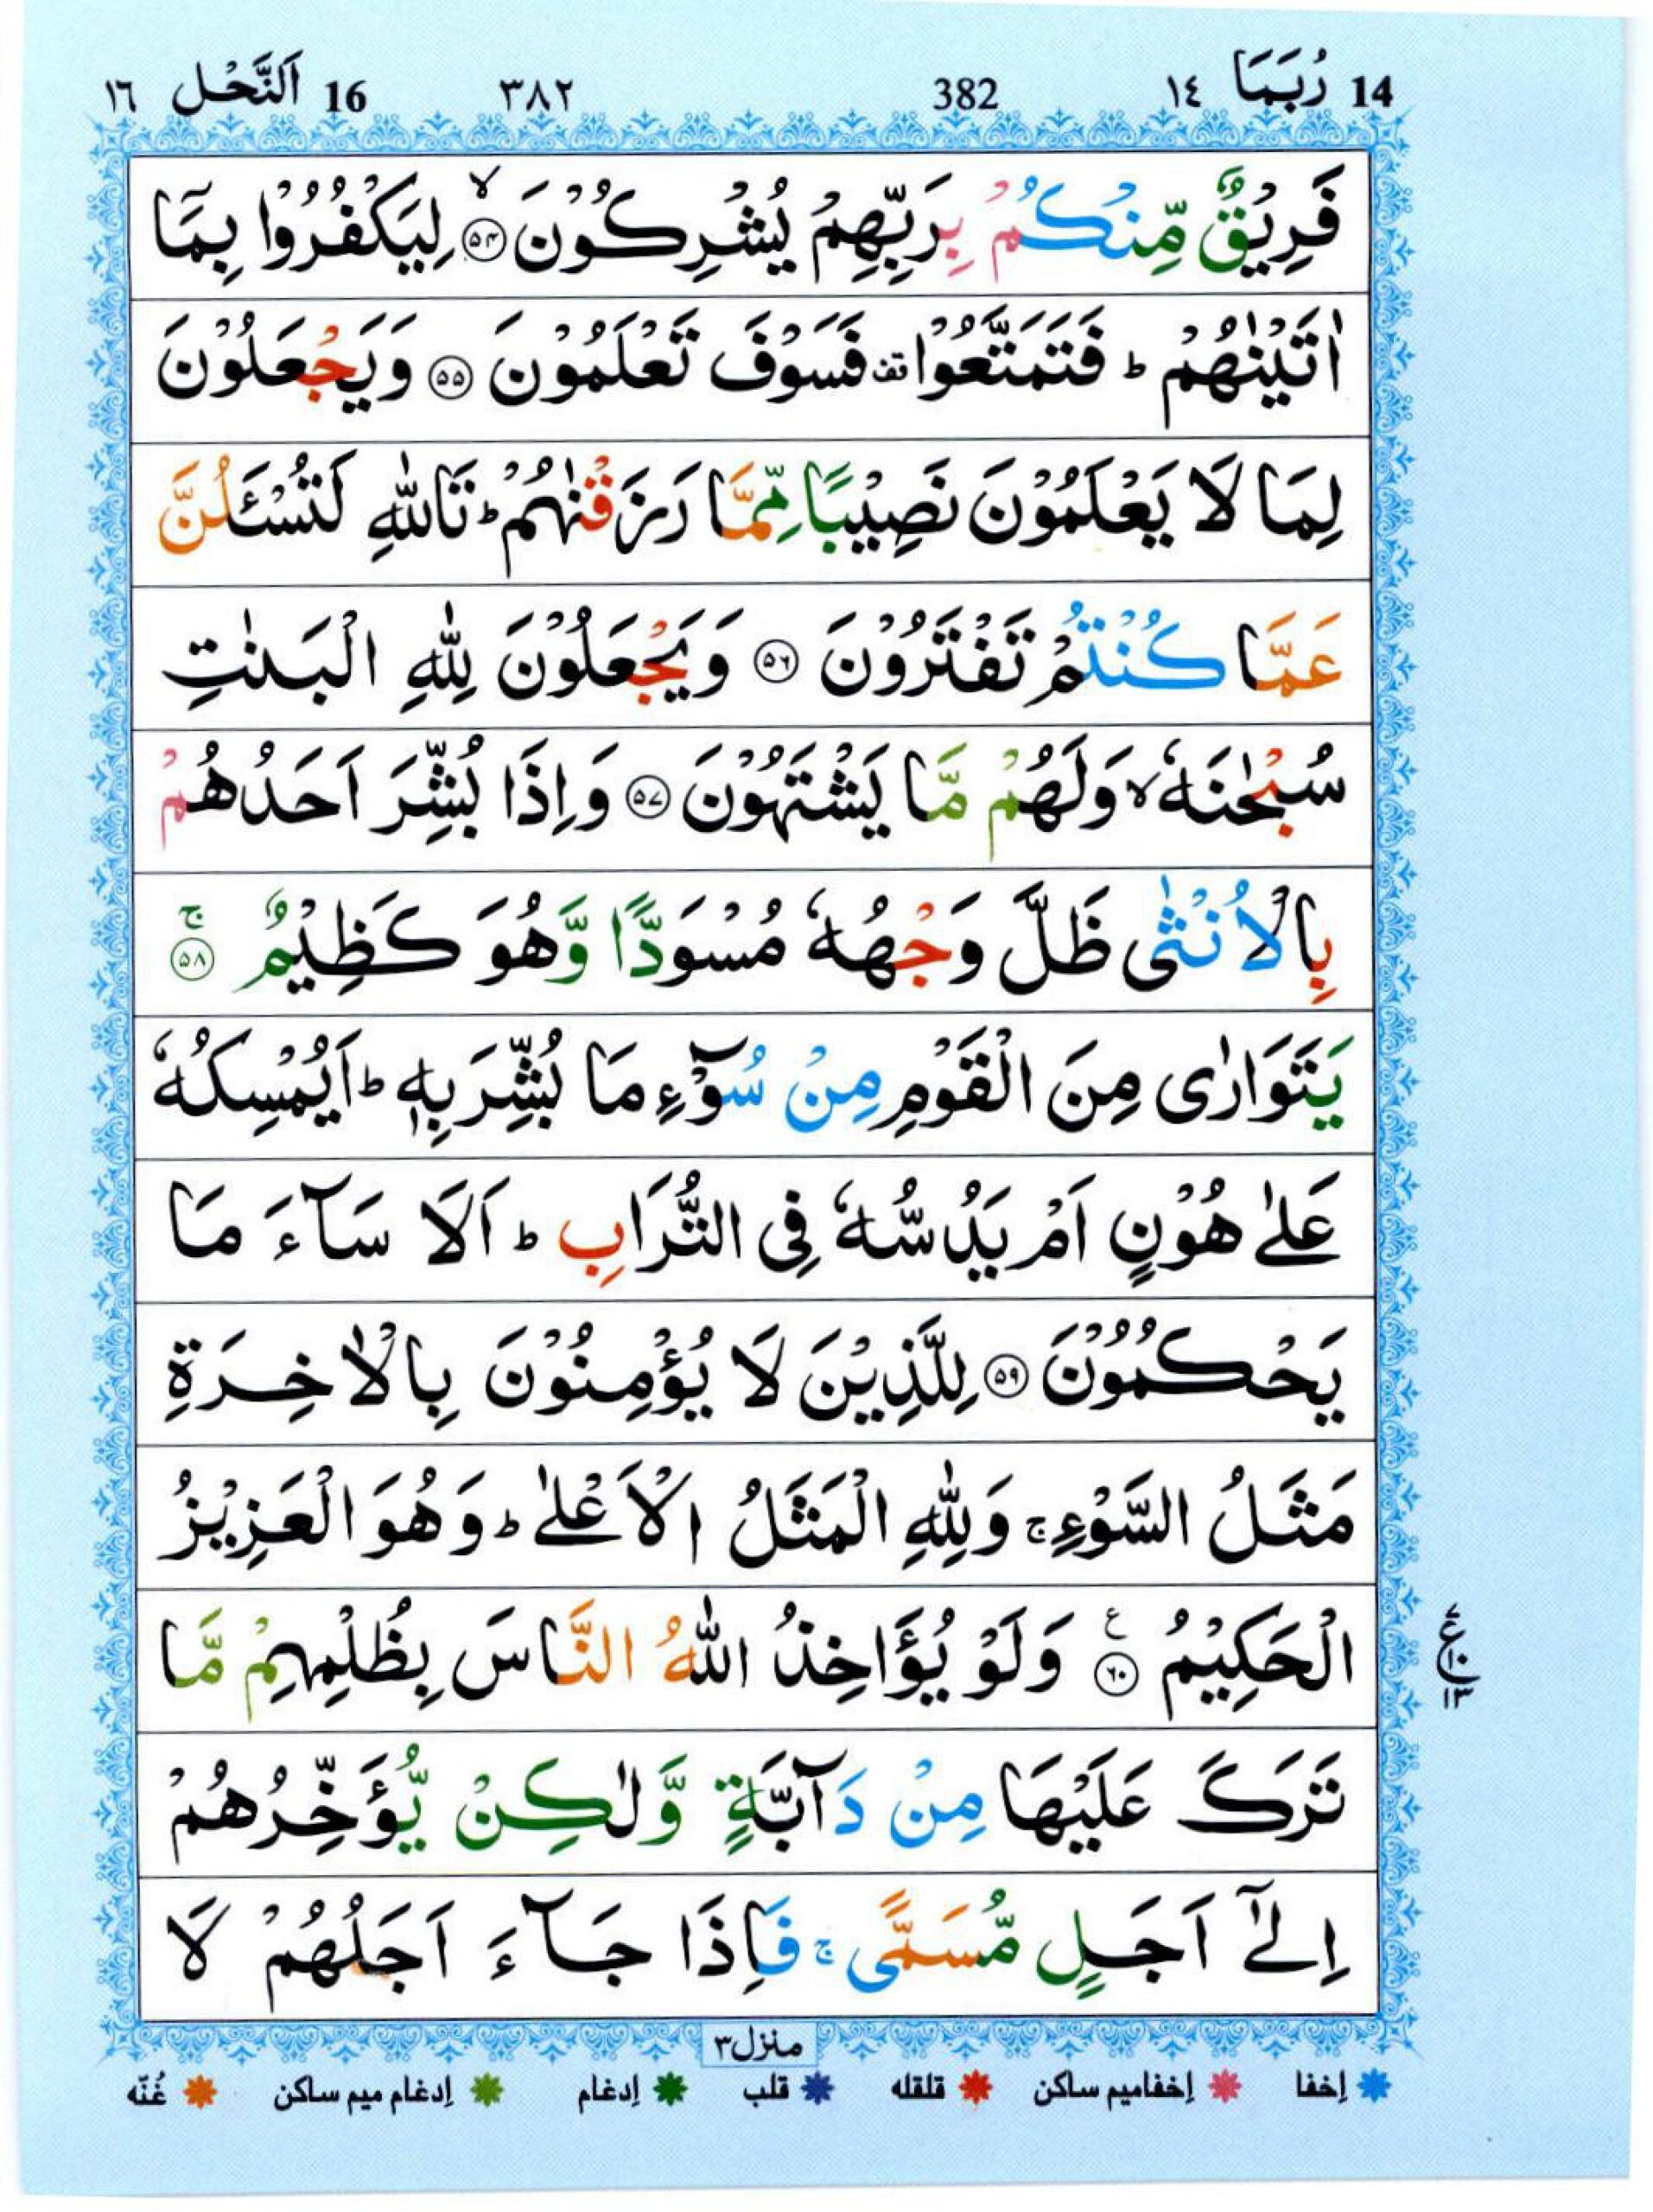 14 رُبَمَا ١٤ 382 ٣٨٢ 16 اَلنَّحْل ١٦
فَرِيْقٌ مِّنْكُمْ بِرَبِّهِمْ يُشْرِكُوْنَ ۙ‏﴿۵۴﴾ لِيَكْفُرُوْا بِمَاۤ
اٰتَيْنٰهُمْ ؕ فَتَمَتَّعُوْا ۥ قف فَسَوْفَ تَعْلَمُوْنَ ﴿۵۵﴾ وَيَجْعَلُوْنَ
لِمَا لَا يَعْلَمُوْنَ نَصِيْبًا مِّمَّا رَزَقْنٰهُمْ ؕ تَاللّٰهِ لَتُسْئَلُنَّ
عَمَّا كُنْتُمْ تَفْتَرُوْنَ ﴿۵۶﴾ وَيَجْعَلُوْنَ لِلّٰهِ الْبَنٰتِ
سُبْحٰنَهٗ ۙ وَلَهُمْ مَّا يَشْتَهُوْنَ ﴿۵۷﴾ وَاِذَا بُشِّرَ اَحَدُهُمْ
بِالْاُنْثٰى ظَلَّ وَجْهُهٗ مُسْوَدًّا وَّهُوَ كَظِيْمٌ ۚ ﴿۵۸﴾
يَتَوَارٰى مِنَ الْقَوْمِ مِنْ سُوْٓءِ مَا بُشِّرَ بِهٖ ؕ اَيُمْسِكُهٗ
عَلٰى هُوْنٍ اَمْ يَدُسُّهٗ فِى التُّرَابِ ؕ اَلَا سَآءَ مَا
يَحْكُمُوْنَ ﴿۵۹﴾ لِلَّذِيْنَ لَا يُؤْمِنُوْنَ بِالْاٰخِرَةِ
مَثَلُ السَّوْءِ ۚ وَلِلّٰهِ الْمَثَلُ الْاَعْلٰى ؕ وَهُوَ الْعَزِيْزُ
الْحَكِيْمُ ﴿۶۰﴾ ع وَلَوْ يُؤَاخِذُ اللّٰهُ النَّاسَ بِظُلْمِهِمْ مَّا
ع ٧ ١٠ ١٣
تَرَكَ عَلَيْهَا مِنْ دَآبَّةٍ وَّلٰكِنْ يُّؤَخِّرُهُمْ
اِلٰٓى اَجَلٍ مُّسَمًّى ۚ فَاِذَا جَآءَ اَجَلُهُمْ لَا
منزل ٣
إخفا إخفاميم ساكن قلقله قلب إدغام إدغام ميم ساكن غُنّه